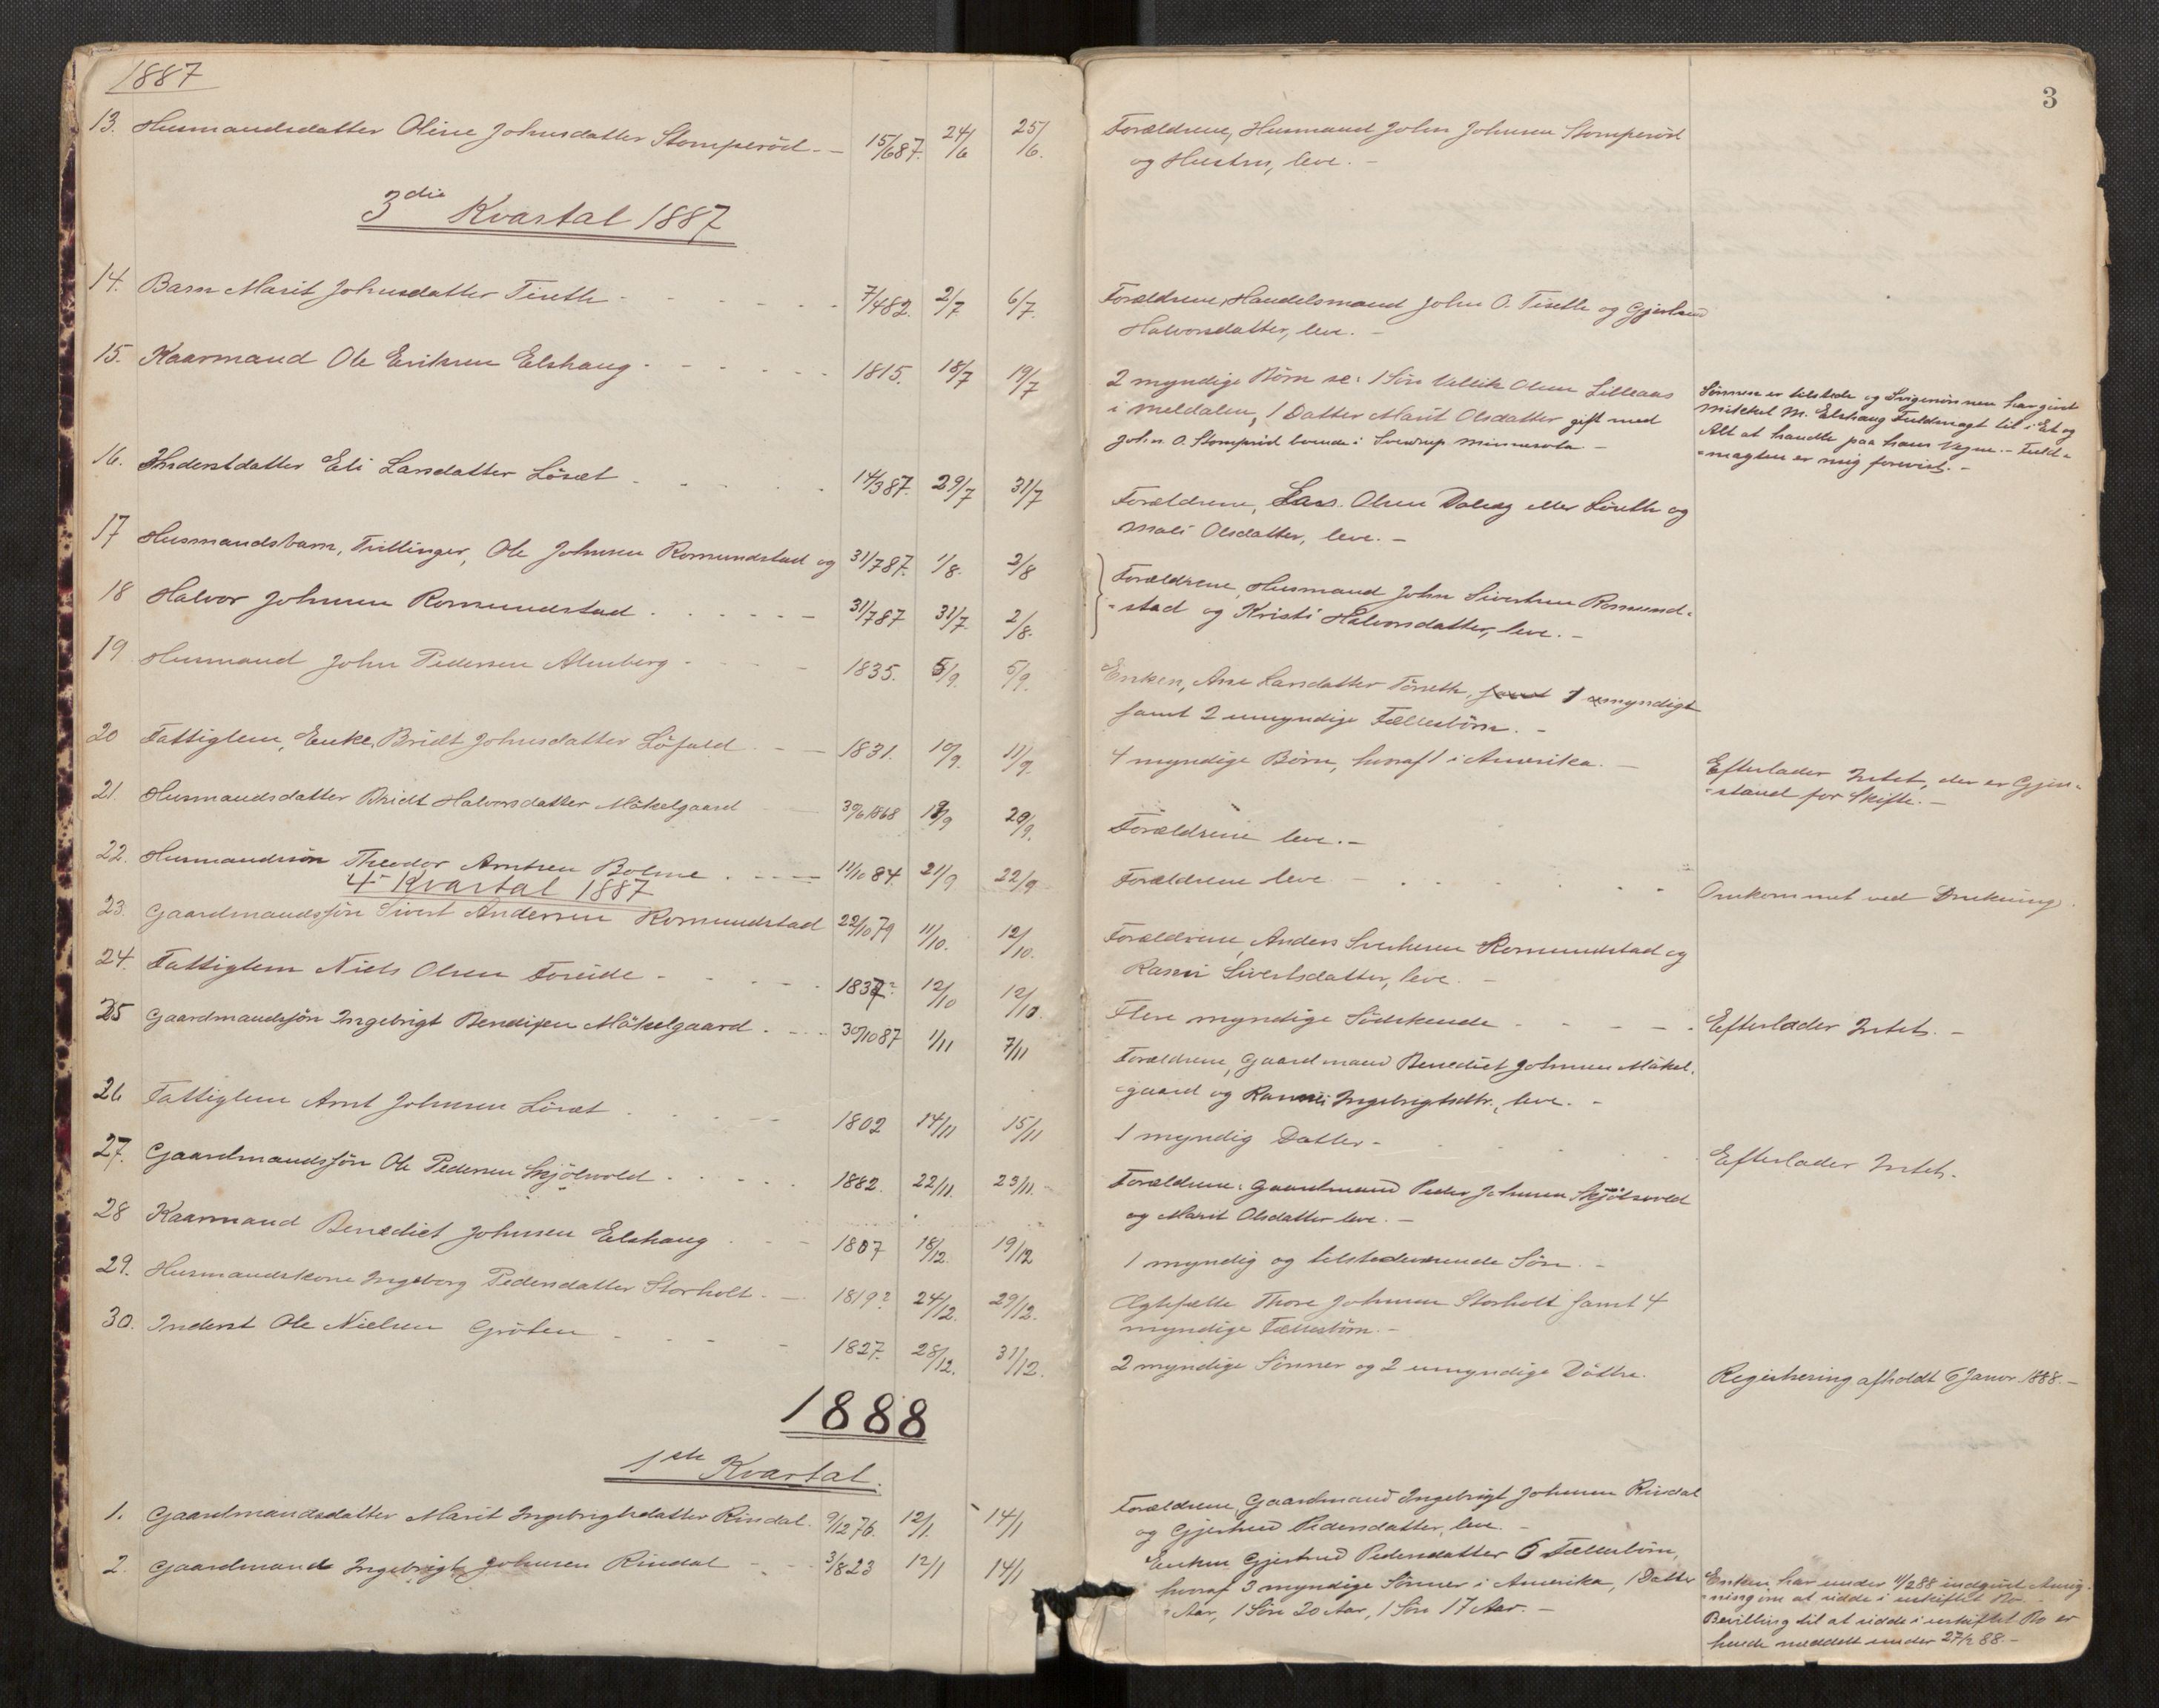 1887
13. Husmandsdatter Oline Johnsdatter Stomperöd. — 15/6 87. 24/6 25/6.
3die Kvartal 1887
14. Barn Marit Johnsdatter Tiseth 7/4 82. 2/7 6/7.
15. Kaarmand Ole Eriksen Elshaug 1815. 18/7 19/7
16. Inderstdatter Eli Larsdatter Löset 14/3 87. 29/7 31/7
17 Husmandsbarn, Tvillinger, Ole Johnsen Romundstad og 31/7 87. 1/8. 2/8
18 Halvor Johnsen Romundstad 31/7 87 31/7 2/8.
19 Husmand John Pedersen Almberg 1835. 5/9. 5/9.
20 Fattiglem, Enke, Bridt Johnsdatter Löfald 1831. 10/9. 11/9.
21. Husmandsdatter Bridt Halvorsdatter Mökelgaard 30/6 1868 19/9 20/9.
22. Husmandssön Theodor Arntsen Bolme 11/10 84. 21/9 22/9
4de Kvartal 1887
23. Gaardmandssön Sivert Andersen Romundstad 22/10 79 11/10. 12/10.
24. Fattiglem Niels Olsen Foseide 1837? 12/10 12/10.
25 Gaardmandssön Ingebrigt Bendixen Mökelgaard 30/10 87 1/11 7/11
26 Fattiglem Arnt Johnsen Löset 1802 14/11 15/11
27. Gaardmandssön Ole Pedersen Skjölsvold 1882. 22/11. 23/11.
28 Kaarmand Benedict Johnsen Elshaug 1807 18/12. 19/12
29. Husmandskone Ingeborg Pedersdatter Storholt. 1819? 24/12. 29/12.
30. Inderst Ole Nielsen Gröten 1827. 28/12. 31/12.
1888
1ste Kvartal.
1. Gaardmandsdatter Marit Ingebrigtsdatter Rindal. 9/12 76. 12/1. 14/1
2. Gaardmand Ingebrigt Johnsen Rindal 3/8 23 12/1 14/1
3
Forældrene, Husmand John Johnsen Stomperöd
og Hustru, leve. —
Forældrene, Handelsmand John O. Tiseth og Gjertrud
Halvorsdatter, leve. —
2 myndige Börn se: 1 Sön Olsen Lilleaas
i Meldalen, 1 Datter Marit Olsdatter gift med
John O. Stomperöd boende i Sverdrup Minnesota —
Sönnen er tilstede og Svigersönnen har givet
Mikkel M. Elshaug Fuldmagt til i Et og
Alt at handle paa hans Vegne. — Fuld=
=magten er mig forevist. —
Forældrene, Lars Olsen eller Löseth og
Mali Olsdatter, leve. —
Forældrene, Husmand John Sivertsen Romund=
=stad og Kristi Halvorsdatter, leve. —
Enken, Ane Larsdatter Töseth, samt 1 myndigt
samt 2 umyndige Fællesbörn. —
4 myndige Börn, hvoraf 1 i Amerika. —
Efterlader Intet, der er Gjen=
=stand for Skifte. —
Forældrene leve. —
Forældrene leve
Omkommet ved Drukning.
Forældrene, Anders Sivertsen Romundstad og
Rasmi Sivertsdatter, leve. —
Flere myndige Södskende
Efterlader Intet. —
Forældrene, Gaardmand Benedict Johnsen Mökel=
=gaard og Ranni Ingebrigtsdtr., leve. —
1 myndig Datter
Efterlader Intet.
Forældrene: Gaardmand Peder Johnsen Skjölsvold
og Marit Olsdatter leve. —
1 myndig og tilstedeværende Sön. —
Ægtefælle Thore Johnsen Storholt samt 4
myndige Fællesbörn. —
2 myndige Sönner og 2 umyndige Döttre.
Registrering afholdt 6 Janvr 1888. —
Forældrene, Gaardmand Ingebrigt Johnsen Rindal
og Gjertrud Pedersdatter, leve. —
Enken Gjertrud Pedersdatter 6 Fællesbörn,
hvoraf 3 myndige Sönner i Amerika, 1 Datter
Aar, 1 Sön 20 Aar, 1 Sön 17 Aar. —
Enken har under 11/2 88 indgivet
om at sidde i uskiftet Bo
Bevilling til at sidde i uskiftet Bo er
hende meddelt under 27/2 88. —